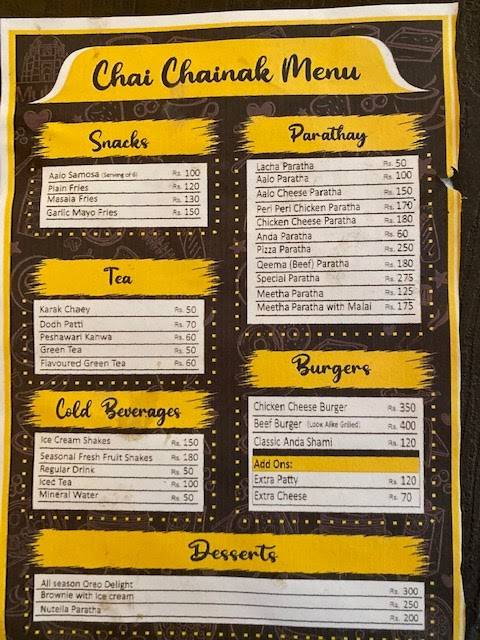 Chai Chainak Menu
Snacks
Aalo Samosa (Serving of 6) Rs. 100
Plain Fries Rs. 120
Masala Fries Rs. 130
Garlic Mayo Fries Rs. 150
Tea
Karak Chaey Rs. 50
Dodh Patti Rs. 70
Peshawari Kahwa Rs. 60
Green Tea Rs. 50
Flavoured Green Tea Rs. 60
Cold Beverages
Ice Cream Shakes Rs. 150
Seasonal Fresh Fruit Shakes Rs. 180
Regular Drink Rs. 50
Iced Tea Rs. 100
Mineral Water Rs. 50
Parathay
Lacha Paratha Rs. 50
Aalo Paratha Rs. 100
Aalo Cheese Paratha Rs. 150
Peri Peri Chicken Paratha Rs. 170
Chicken Cheese Paratha Rs. 180
Anda Paratha Rs. 60
Pizza Paratha Rs. 250
Qeema (Beef) Paratha Rs. 180
Special Paratha Rs. 275
Meetha Paratha Rs. 125
Meetha Paratha with Malai Rs. 175
Burgers
Chicken Cheese Burger Rs. 350
Beef Burger (Look Alike Grilled) Rs. 400
Classic Anda Shami Rs. 120
Add Ons:
Extra Patty Rs. 120
Extra Cheese Rs. 70
Desserts
All season Oreo Delight Rs. 300
Brownie with Ice cream Rs. 250
Nutella Paratha Rs. 200